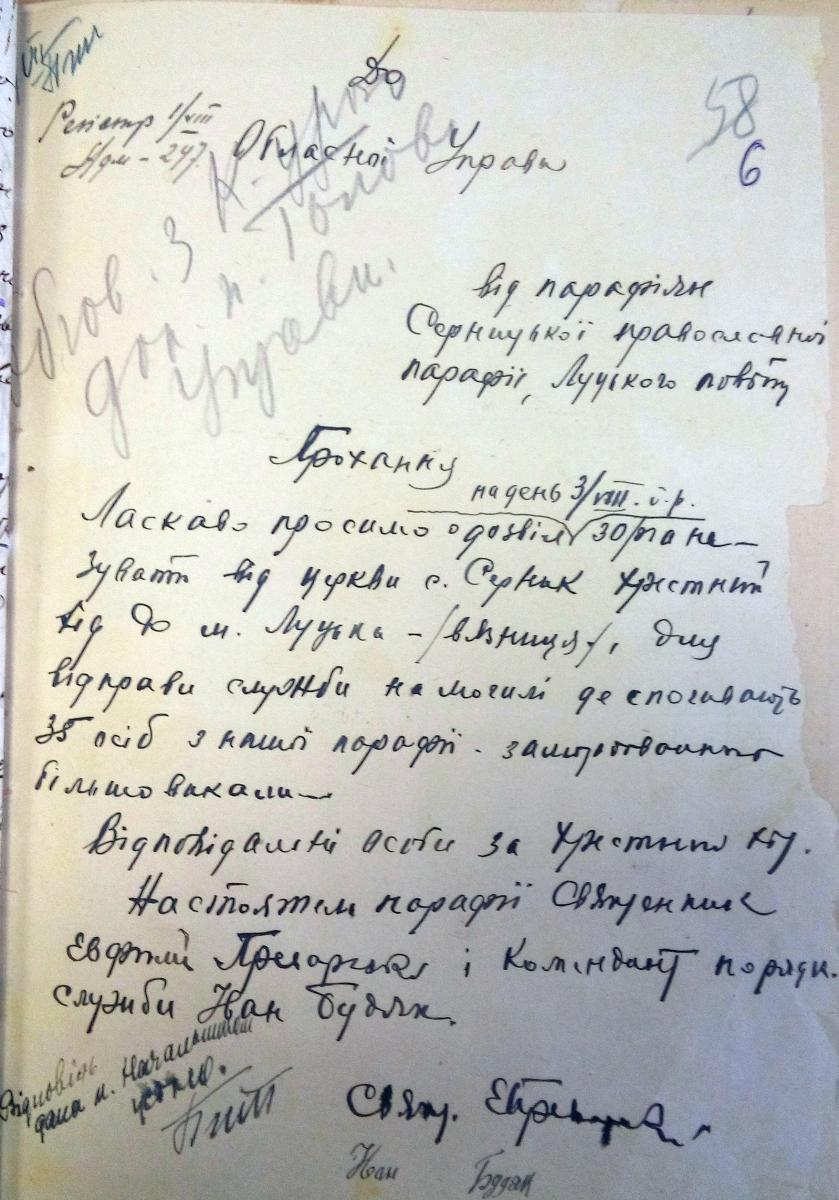 До
58
Реєстр 1/VIII
Адм – 247.
Обласної Управи
6
обгов. з К.
дор. п. Голові
Управи.
від парафіян
Серницької православної
парафії, Луцького повіту
Прохання
на день 3/VIII. ц.р.
Ласкаво просимо о дозвіл зоргане–
зувати від церкви с. Серник хрестний
хід до м. Луцька – /вязниця/, для
відправи служби на могилі де спочивають
35 осіб з нашої парафії
більшовиками
Відповідальні особи за хрестний хід.
Настоятель парафії Священник
Евфимій і Комендант порядк.
служби Иван Будяк.
Відповідь
дана п. Начальником
устно.
Свящ.
Иван Будяк